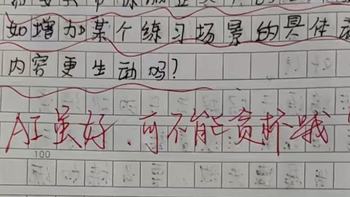 如增加某个练习场景的具体
内容更生动吗？
AI虽好，可不能贪杯哦
100